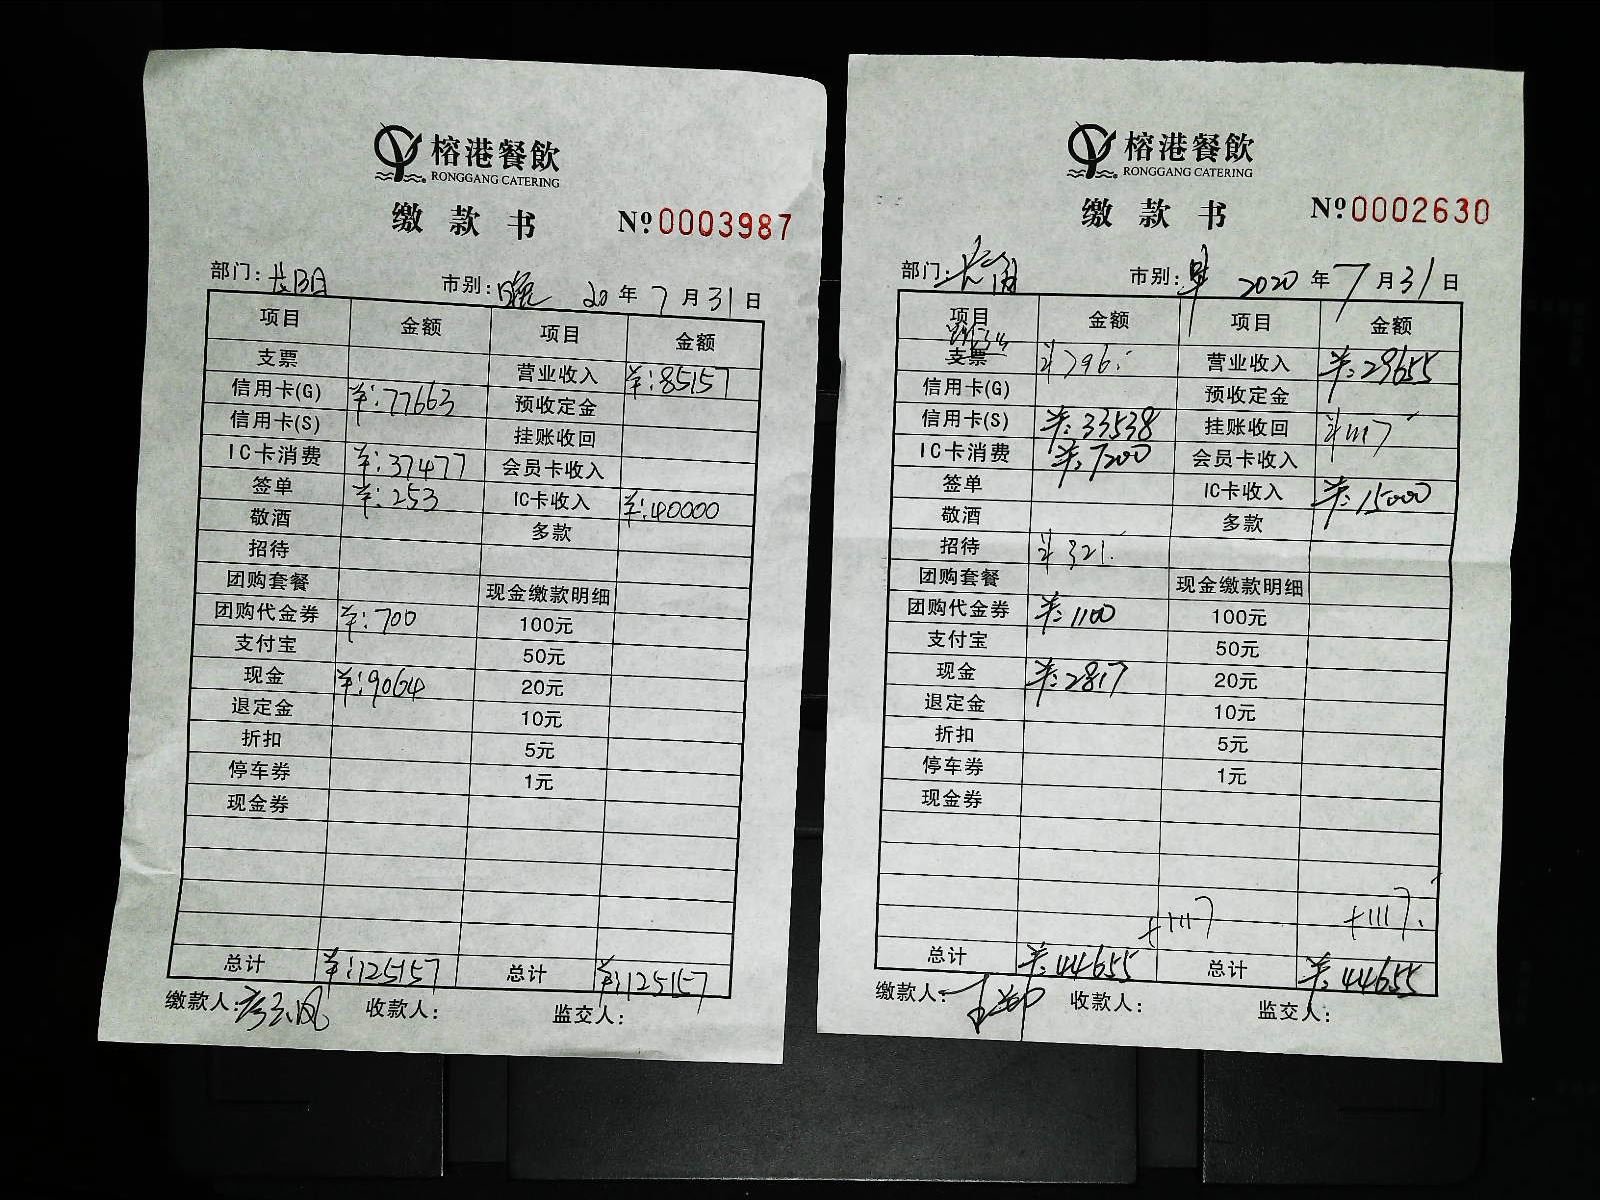 榕港餐飲
RONGGANG CATERING
缴款书 №0003987
部门: 市别:晚 20年7月31日
项目 金额 项目 金额
支票 营业收入 ¥:85157
信用卡(G) ¥:77663 预收定金
信用卡(S) 挂账收回
IC卡消费 ¥:37477 会员卡收入
签单 ¥:253 IC卡收入 ¥:40000
敬酒 多款
招待
团购套餐 现金缴款明细
团购代金券 ¥:700 100元
支付宝 50元
现金 ¥:9064 20元
退定金 10元
折扣 5元
停车券 1元
现金券
总计 ¥:125157 总计 ¥:125157
缴款人: 收款人: 监交人:
榕港餐飲
RONGGANG CATERING
缴款书 №0002630
部门: 市别:早 2020年7月31日
项目 金额 项目 金额
支票 ¥796. 营业收入 ¥:29655
信用卡(G) 预收定金
信用卡(S) ¥:33538 挂账收回 ¥1117
IC卡消费 ¥:7200 会员卡收入
签单 IC卡收入 ¥:15000
敬酒 多款
招待 ¥321.
团购套餐 现金缴款明细
团购代金券 ¥:1100 100元
支付宝 50元
现金 ¥:2817 20元
退定金 10元
折扣 5元
停车券 1元
现金券
+1117 +1117.
总计 ¥:44655 总计 ¥:44655
缴款人: 收款人: 监交人: